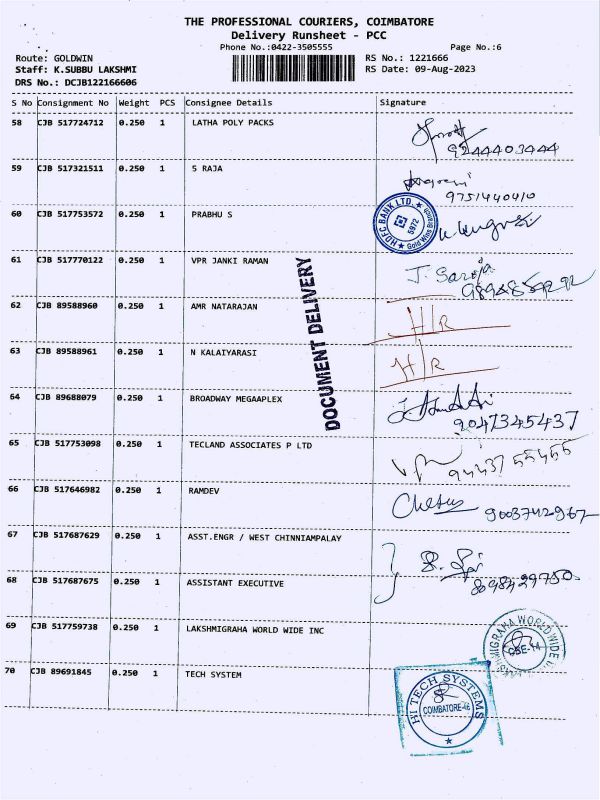 THE PROFESSIONAL COURIERS, COIMBATORE
Delivery Runsheet - PCC
Phone No.:0422-3505555 Page No.:6
Route: GOLDWIN RS No.: 1221666
Staff: K.SUBBU LAKSHMI RS Date: 09-Aug-2023
DRS No.: DCJB122166606
S No Consignment No Weight PCS Consignee Details Signature
58 CJB 517724712 0.250 1 LATHA POLY PACKS
9244403444
59 CJB 517321511 0.250 1 S RAJA
9751440410
60 CJB 517753572 0.250 1 PRABHU S
HDFC BANK LTD. 5972
61 CJB 517770122 0.250 1 VPR JANKI RAMAN
J. Saroja
DOCUMENT DELIVERY
62 CJB 89588960 0.250 1 AMR NATARAJAN
H/R
63 CJB 89588961 0.250 1 N KALAIYARASI
H/R
64 CJB 89688079 0.250 1 BROADWAY MEGAAPLEX
9047345437
65 CJB 517753098 0.250 1 TECLAND ASSOCIATES P LTD
94437 55455
66 CJB 517646982 0.250 1 RAMDEV
9003742967
67 CJB 517687629 0.250 1 ASST.ENGR / WEST CHINNIAMPALAY
68 CJB 517687675 0.250 1 ASSISTANT EXECUTIVE
8098429750
69 CJB 517759738 0.250 1 LAKSHMIGRAHA WORLD WIDE INC
CBE-14
70 CJB 89691845 0.250 1 TECH SYSTEM
HI TECH SYSTEMS
COIMBATORE-46